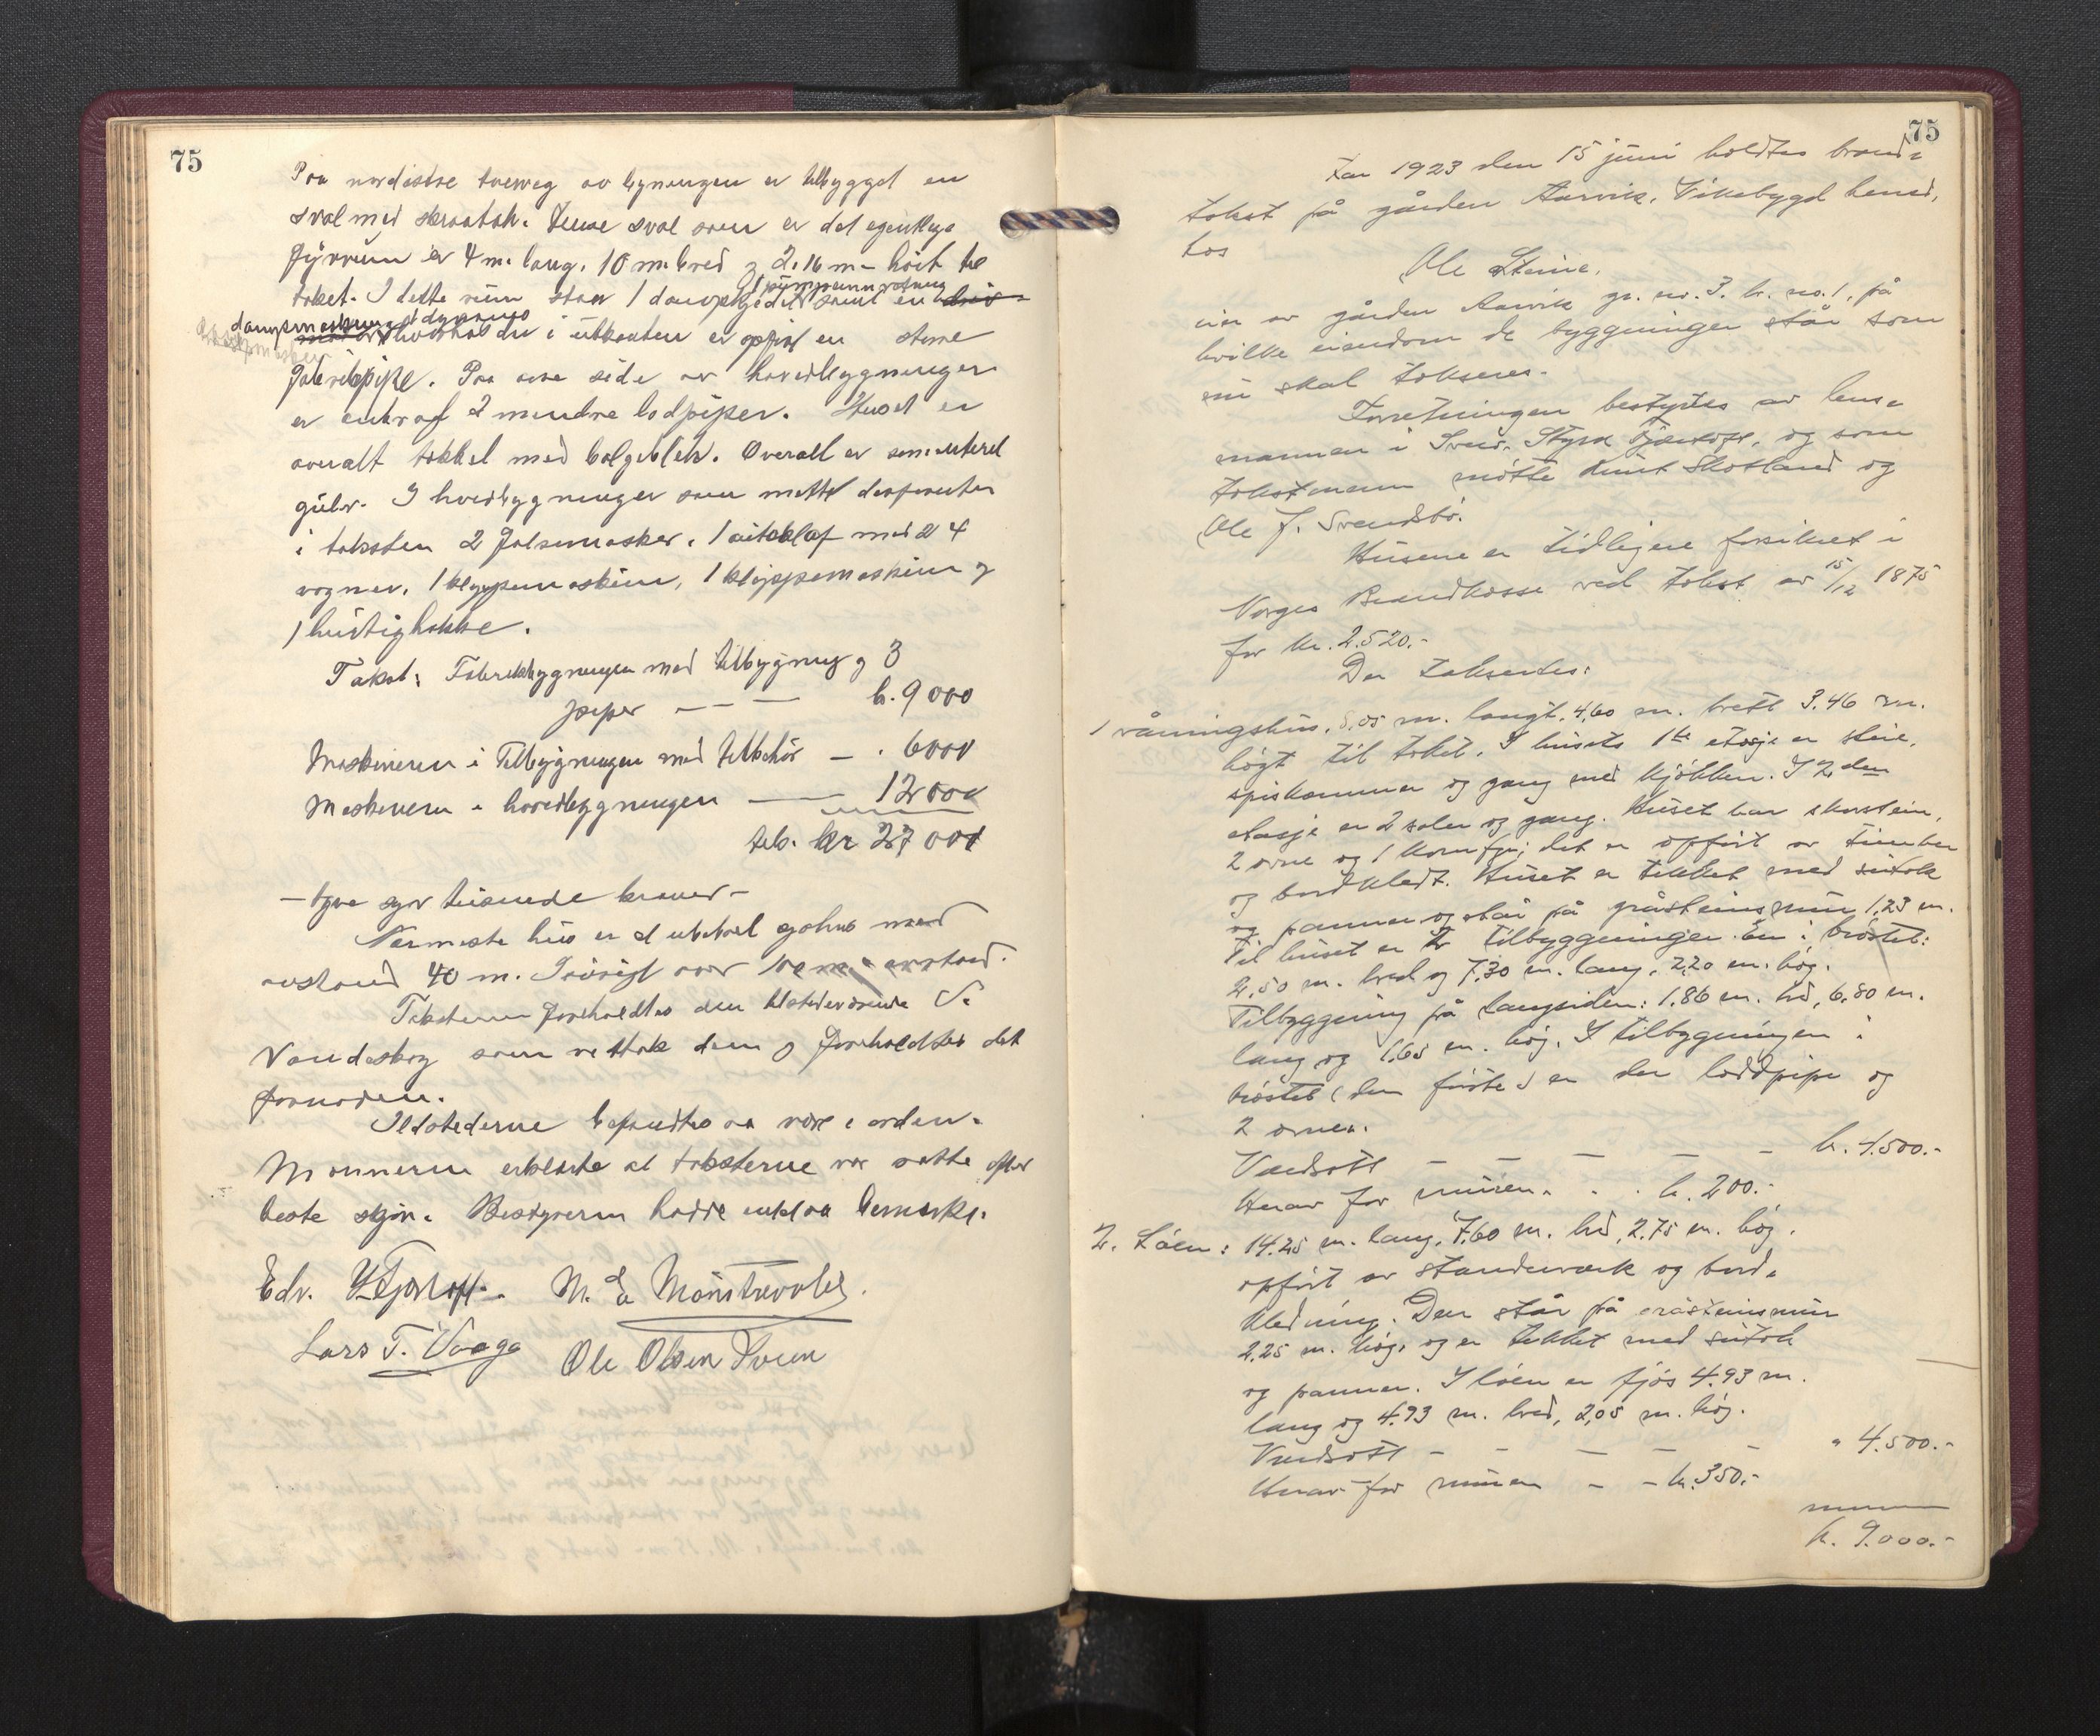 75
Paa nordøstre tverveg av bygningen er tilbygget en
sval med skraatak. Denne sval som er det egentlige
fyrrum er 4 m. lang. 10 m. bred og 2.16 m høit til
taket. I dette rum staar 1 dampkjedel samt en
dampmaskine 1 dynamo
hvorhos der i utkanten er opført en større
fabrikpipe. Paa øvre side av hovedbygningen
er endvidere 2 mindre lodpiper. Huset er
overalt tækket med bølgeblik. Overalt er sementeret
gulv. I hovedbygningen som
i taksten 2 falsemasker. 1 autoklaf med 24
vogner. 1 klippemaskin, 1 klippemaskin og
1 hurtighakke.
Takst: Fabrikbygningen med tilbygning og 3
piper — — — kr. 9000
Maskineren i Tilbygningen med tilbehør — . 6000
Maskineren i hovedbygningen — 12000
tils. kr 27 000
— tyve syv tusende kroner —
Nærmeste hus er et ubeboet sjøhus med
avstand 40 m. Iøvrigt over 100 m. avstand.
Taksten foreholdtes den tilstedeværende V.
Vandaskog som vedtok dem og foreholdtes det
fornødne.
Ildstederne befandtes aa være i orden.
Mænnerne erklærte at taksterne var satte efter
beste skjøn. Bestyreren hadde intet aa bemerke.
Edv. M. Mønstrevold.
Lars T. Vaage Ole Olsen Sveen
75
Aar 1923 den 15 juni holdtes brand-
takst på gården Aarvik, Vikebygd herred,
hos
Ole Steine.
eier av gården Aarvik gr. nr. 3. br. no. 1, på
hvilke eiendom de byggninger står som
nu skal takseres.
Forretningen bestyrtes av lens-
mannen i Sveio, og som
takstmenn møtte Knut Skotland og
Ole J. Svendsbø.
Husene er tidligere forsikret i
Norges Brandkasse ved takst av 15/12 1875
for kr. 2.520.-
Der taksertes:
1 våningshus, 8,05 m. langt, 4,60 m. brett 3.46 m.
høgt til taket. I husets 1ste etasje er stue,
spiskammer og gang med kjøkken. I 2den
etasje er 2 saler og gang. Huset har skorstein,
2 ovne og 1 komfyr; det er opført av timber
og bordkledt. Huset er tekket med sutak
og panner og står på gråsteinsmur 1,23 m.
Til huset er 2 tilbyggninger. En i brøstet:
2,50 m. bred og 7,30 m. lang, 2,20 m. høg.
Tilbyggning på langsiden: 1,86 m. brd, 6,80 m.
lang og 1,65 m. høg. I tilbygningen i
brøstet (den første) er der loddpipe og
2 ovner.
Verdsatt — — — — — kr. 4.500.-
Herav for muren . . . kr. 200.-
2. Løen: 14.25 m. lang, 7.60 m. brd, 2.75 m. høg.
opført av standerverk og bord-
kledning. Den står på gråsteinsmur
2,25 m. høg, og er tekket med sutak
og panner. I løen er fjøs 4.93 m.
lang og 4.93 m. bred, 2,05 m. høg.
Verdsatt — — — — — " 4.500.-
Herav for muren — — kr. 350.-
kr. 9.000.-